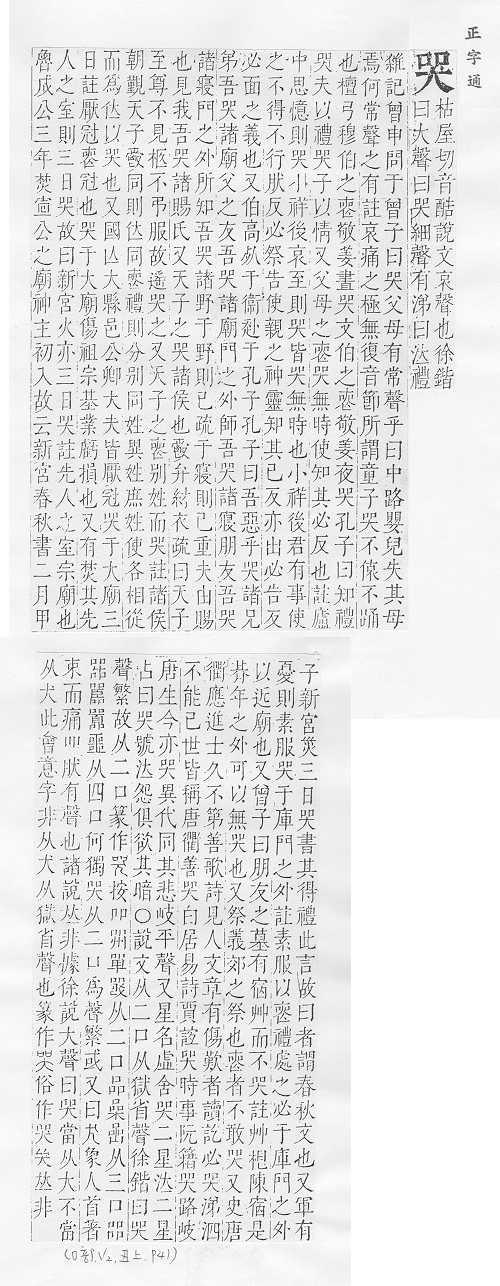 正字通
哭
枯屋切音酷說文哀聲也徐鍇
曰大聲曰哭細聲有涕曰泣禮
雜記曾申問于曾子曰哭父母有常聲乎曰中路嬰兒失其母
焉何常聲之有註哀痛之極無復音節所謂童子哭不偯不踊
也檀弓穆伯之喪敬姜晝哭文伯之喪敬姜夜哭孔子曰知禮
哭夫以禮哭子以情又父母之喪哭無時使知其必反也註廬
中思憶則哭小祥後哀至則哭皆哭無時也小祥後君有事使
之不得不行肰反必祭告使親之神靈知其已反亦出必告反
必面之義也又伯高死于衞赴于孔子孔子曰吾惡乎哭諸兄
弟吾哭諸廟父之友吾哭諸廟門之外師吾哭諸寢朋友吾哭
諸寢門之外所知吾哭諸野于野則已疏于寢則已重夫由賜
也見我吾哭諸賜氏又天子之哭諸侯也爵弁紂衣疏曰天子
至尊不見柩不弔服故遙哭之又天子之喪别姓而哭註諸侯
朝覲天子爵同則位同喪禮則分别同姓異姓庶姓使各相從
而爲位以哭也又國亾大縣邑公卿大夫皆厭冠哭于大廟三
日註厭冠喪冠也哭于大廟傷祖宗基業虧損也又有焚其先
人之室則三日哭故曰新宮火亦三日哭註先人之室宗廟也
魯成公三年焚宣公之廟神主初入故云新宮春秋書二月甲
子新宮災三日哭書其得禮此言故曰者謂春秋文也又軍有
憂則素服哭于庫門之外註素服以喪禮處之必于庫門之外
以近廟也又曾子曰朋友之墓有宿艸而不哭註艸根陳宿是
朞年之外可以無哭也又祭義郊之祭也喪者不敢哭又史唐
衢應進士久不第善歌詩見人文章有傷歎者讀訖必哭涕泗
不能已世皆稱唐衢善哭白居易詩賈誼哭時事阮籍哭路岐
唐生今亦哭異代同其悲岐平聲又星名虛舍哭二星泣二星
占曰哭號泣怨俱欲其暗〇說文从二口从獄省聲徐鍇曰哭
聲繁故从二口篆作哭按吅喌單嚴从二口品喿喦从三口㗊
噐嚻囂噩从四口何獨哭从二口爲聲繁或又曰犬象人首著
束而痛吅肰有聲也諸說𠀤非據徐說大聲曰哭當从大不當
从犬此會意字非从犬从獄省聲也篆作哭俗作哭矣𠀤非
(口部,V2,丑上,P41)